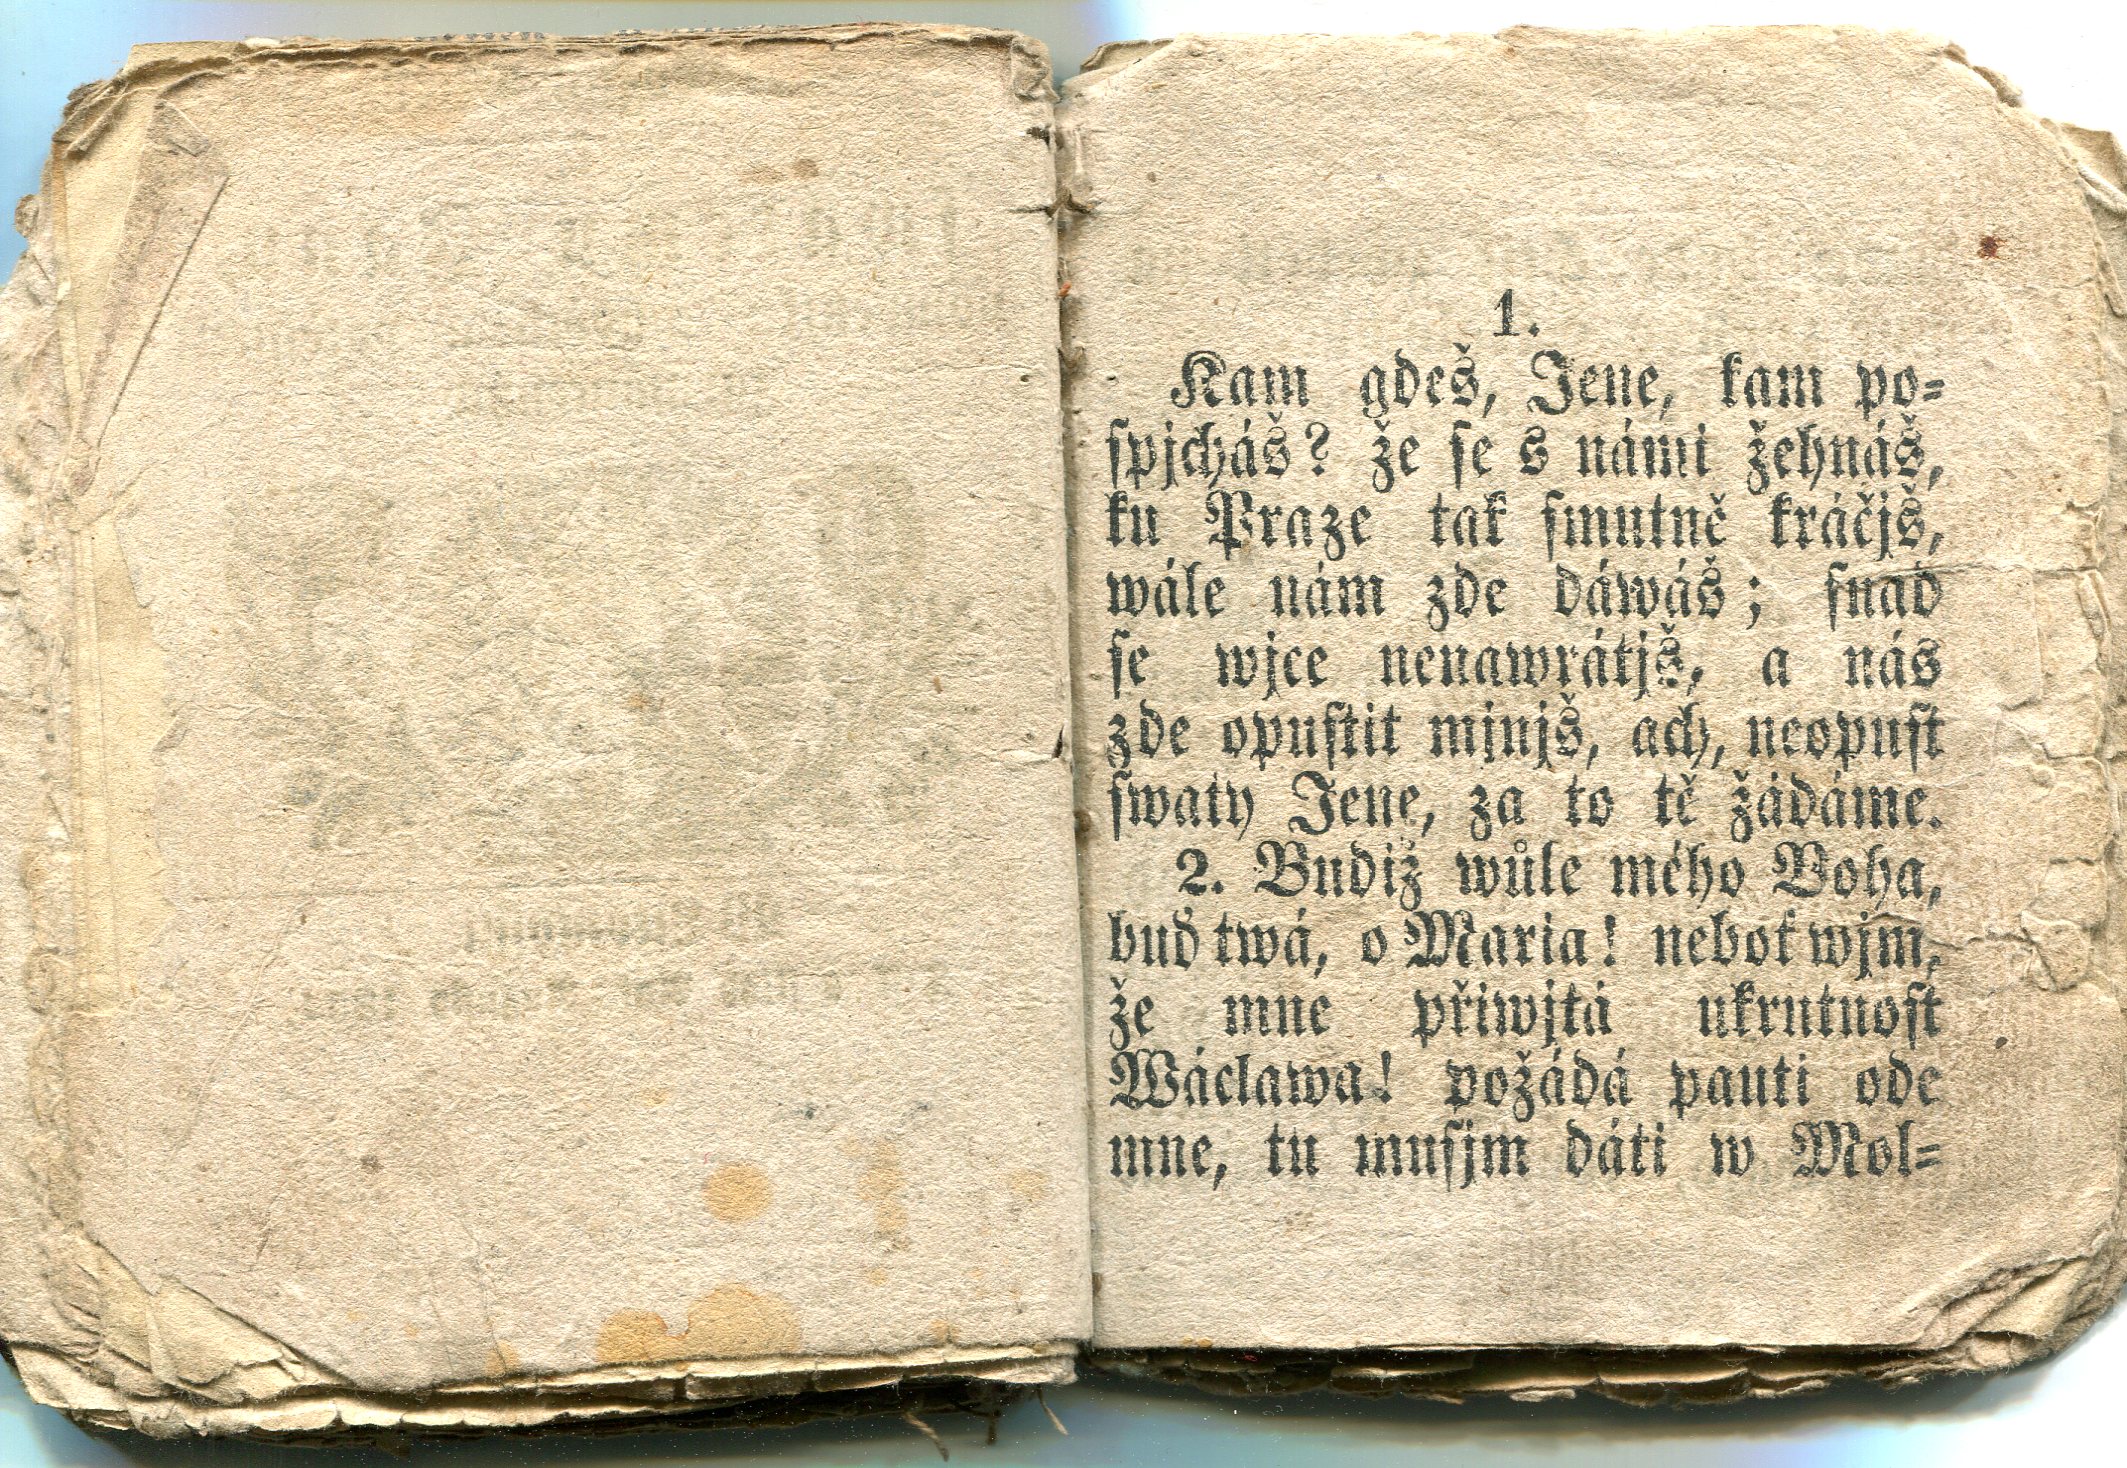 1.
Kam gdeš, Jene, kam po=
spjcháš? že se s námi žehnáš,
ku Praze tak smutně kráčjš,
wále nám zde dáwáš; snad
se wjce nenawrátjš, a nás
zde opustit mjnjš, ach, neopust
swatý Jene, za to tě žádáme.
2. Budiž wůle mého Boha,
buď twá, o Maria! neboť wjm,
že mne přiwjtá ukrutnost
Wáclawa! požádá pauti ode
mne, tu musjm dáti w Mol=